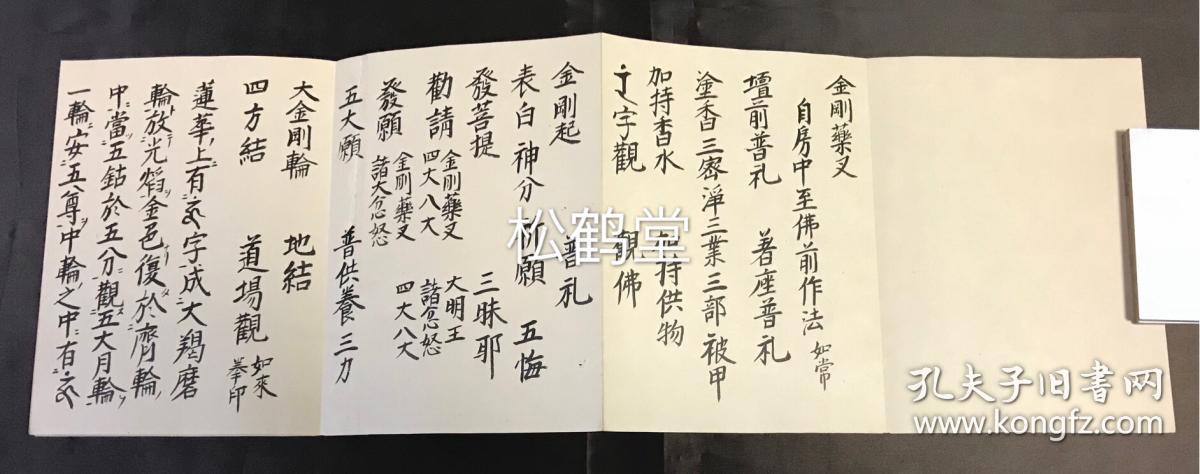 金剛藥叉
自房中至佛前作法 如常
壇前普礼 着座普礼
塗香三密淨三業三部被甲
加持香水 加持供物
字觀 觀佛
金剛起 普礼
表白神分祈願 五悔
發菩提 三昧耶
勸請 金剛藥叉 四大八大 大明王 諸忿怒
發願 金剛藥叉 諸大忿怒 四大八大
五大願 普供養三力
大金剛輪 地結
四方結 道場觀 如來拳印
蓮華上有 字成大羯磨
輪放光焰金色復於齊輪
中當五鈷於五分觀五大月輪
一輪安五尊中輪之中有
松鹤堂
孔夫子旧书网
www.kongfz.com